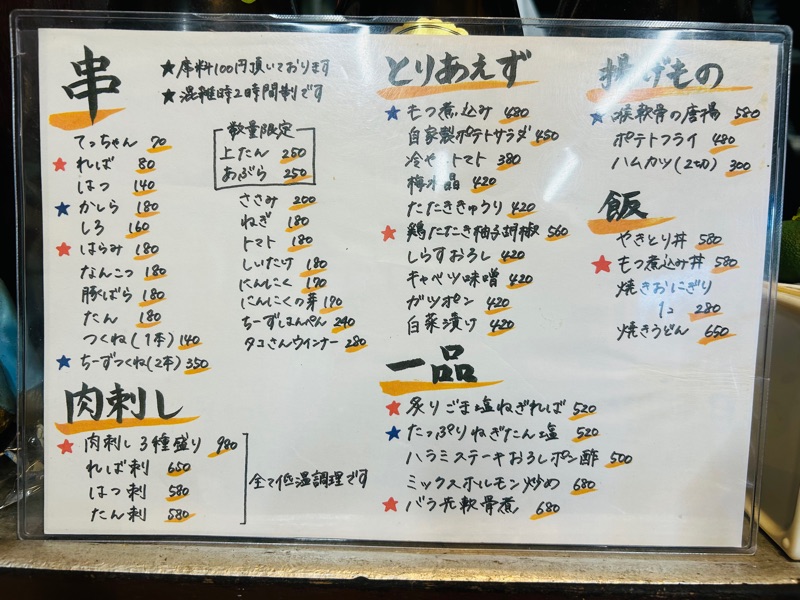 串
★席料100円頂いております
★混雑時2時間制です
てっちゃん 70
★ればー 80
はつ 140
★かしら 180
しろ 160
★はらみ 180
なんこつ 180
豚ばら 180
たん 180
つくね(1本) 140
★ちーずつくね(2本) 350
数量限定
上たん 250
あぶら 250
ささみ 200
ねぎ 180
トマト 180
しいたけ 180
にんにく 170
にんにくの芽 170
ちーずはんぺん 240
タコさんウインナー 280
肉刺し
★肉刺し3種盛り 980
ればー刺 650
はつ刺 580
たん刺 580
全て低温調理です
とりあえず
★もつ煮込み 480
自家製ポテトサラダ 450
冷やしトマト 380
梅水晶 420
たたききゅうり 420
★鶏たたき柚子胡椒 560
しらすおろし 420
キャベツ味噌 420
ガツポン 420
白菜漬け 420
一品
★炙りごま塩ねぎればー 520
★たっぷりねぎたん塩 520
ハラミステーキおろしポン酢 500
ミックスホルモン炒め 680
★バラ先軟骨煮 680
揚げもの
★喉軟骨の唐揚 580
ポテトフライ 480
ハムカツ(2切) 300
飯
やきとり丼 580
★もつ煮込み丼 580
焼きおにぎり
1コ 280
焼きうどん 650